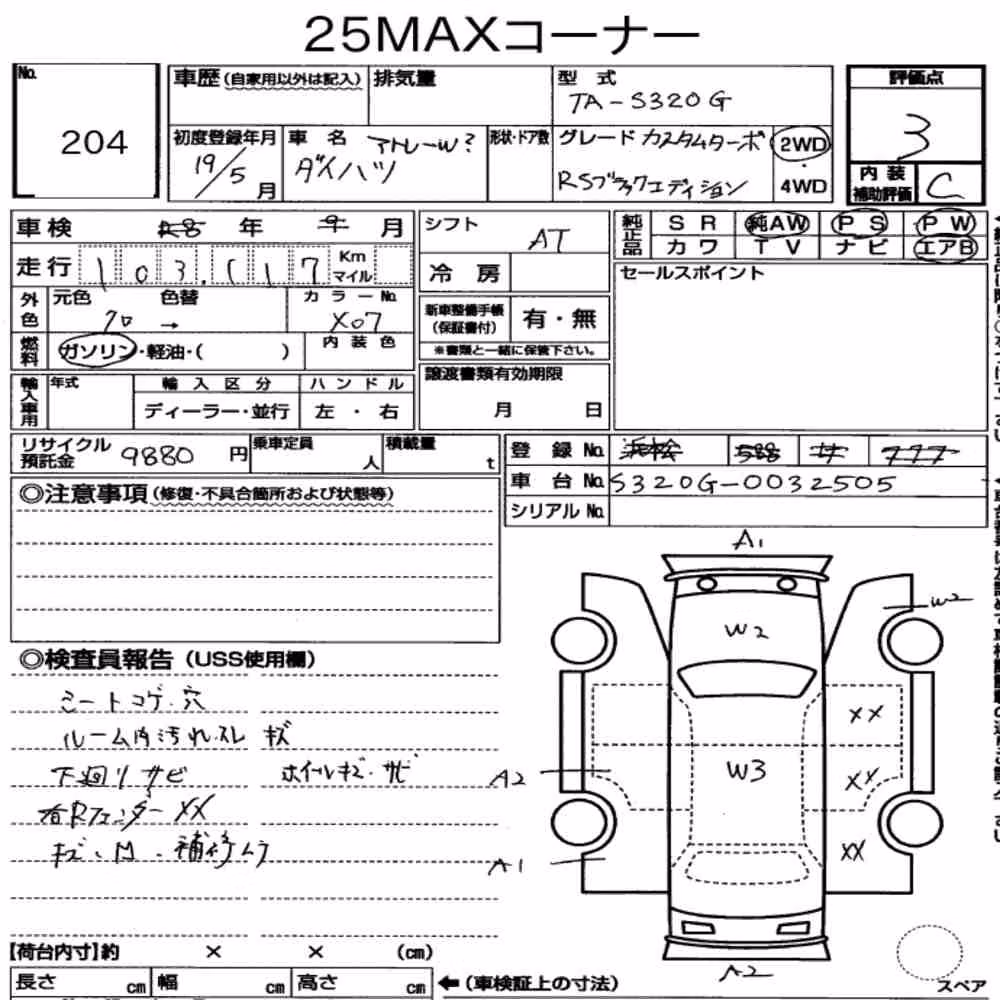 25MAXコーナー
No.
204
車歴(自家用以外は記入)
排気量
型 式
TA-S320G
評価点
3
内装補助評価
C
初度登録年月
19/5月
車 名
アトレーW?
ダイハツ
形状・ドア数
グレード カスタムターボ
RSブラックエディション
2WD
・
4WD
車検
年
月
走行
103,017
Km
マイル
シフト
AT
冷房
純正品
SR 純AW PS PW
カワ TV ナビ エアB
セールスポイント
外色
元色
色替
クロ →
カラーNo.
X07
新車整備手帳
(保証書付)
有・無
※書類と一緒に保管下さい。
燃料
ガソリン・軽油・( )
内装色
輸入車用
年式
輸入区分
ディーラー・並行
ハンドル
左・右
譲渡書類有効期限
月 日
リサイクル預託金
9880円
乗車定員
人
積載量
t
登録No.
浜松 588 777
車台No.
S320G-0032505
シリアルNo.
◎注意事項(修復・不具合箇所および状態等)
◎検査員報告(USS使用欄)
シートコゲ・穴
ルーム内汚れ.スレ キズ
下廻りサビ ホイルキズ・サビ
右Rフェンダー XX
キズ、M、補修ムラ
A1
W2
W2
XX
W3
XX
A2
XX
A1
A2
スペア
【荷台内寸】約 × × (cm)
長さ cm
幅 cm
高さ cm
←(車検証上の寸法)